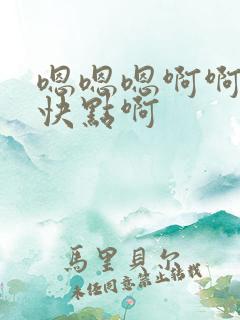 嗯嗯嗯啊啊
快點啊
馬里貝尔
未经同意禁止转载